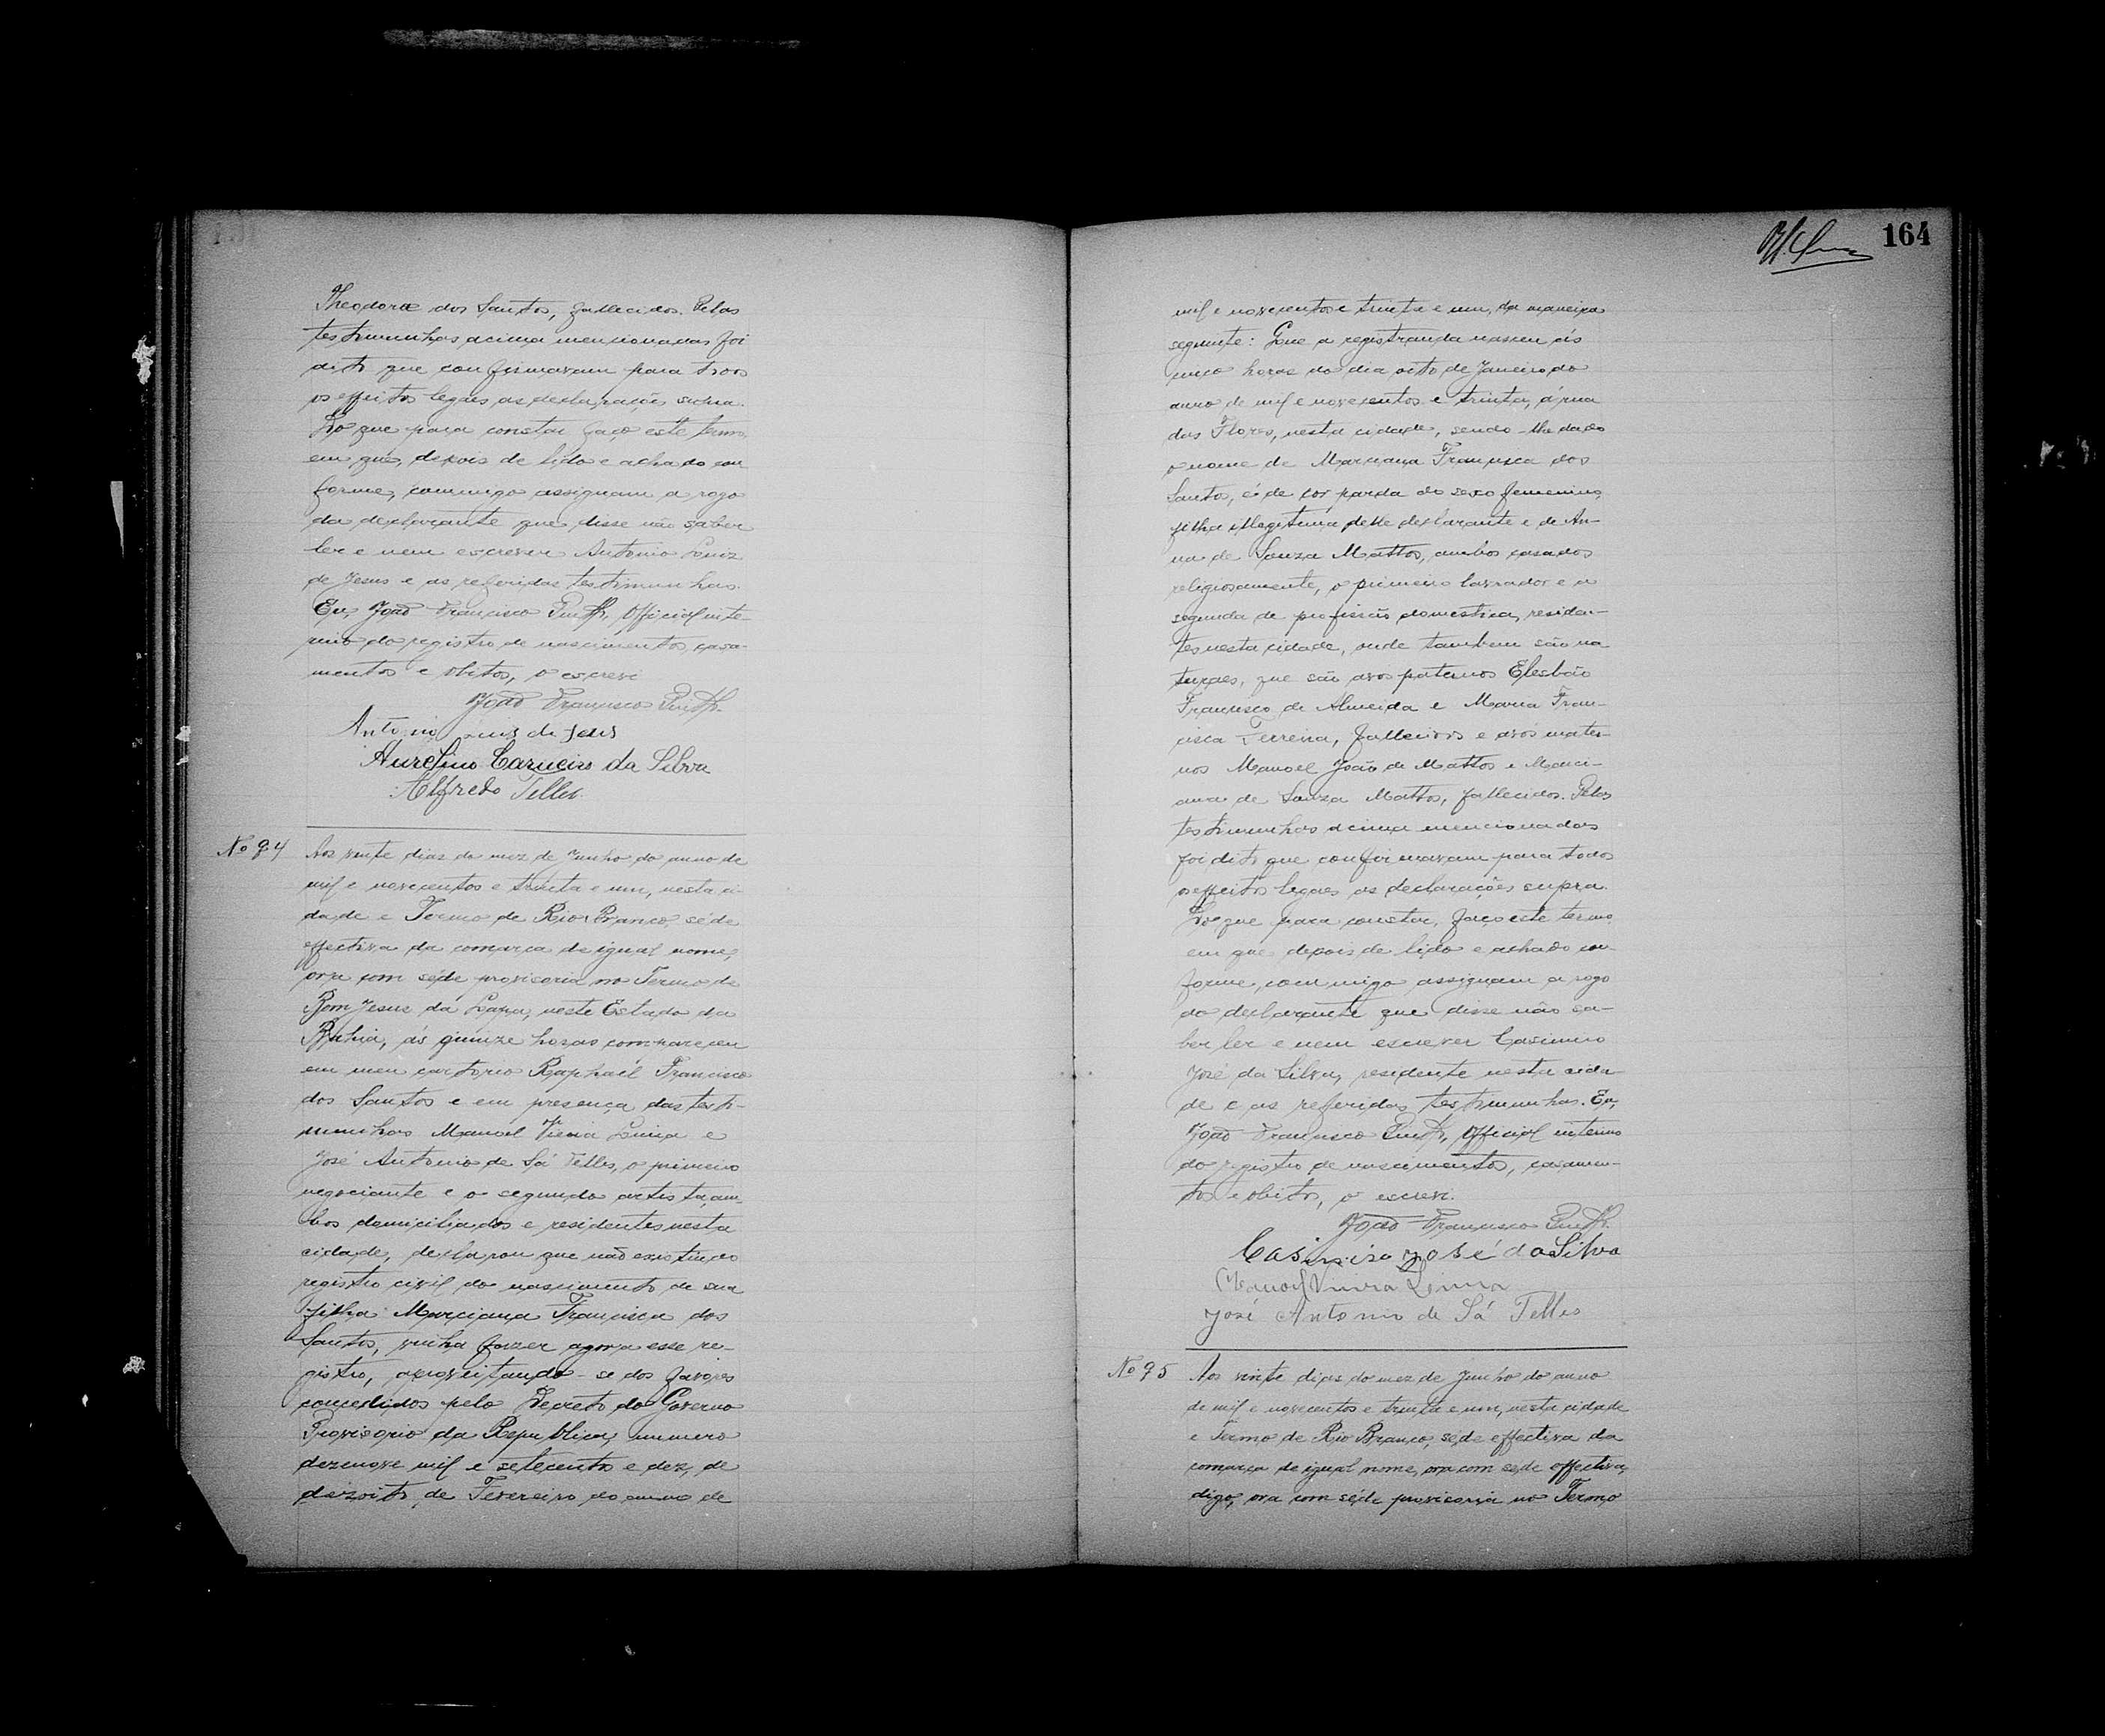 Theodora dos Santos, fallecidos. Pelas
testimunhas acima mencionadas foi
dito que confirmavam para todos
os effeitos legaes as declarações supra.
Do que para constar faço este termo,
em que, depois de lido e achado con
forme, commigo assignam a rogo
da declarante que disse não saber
ler e nem escrever Antonio Luiz
de Jesus e as referidas testimunhas.
Eu, João Francisco Official inte-
rino do registro de nascimentos, casa-
mentos e obitos, o escrevi
João Francisco
Antonio Luis de Jesus
Aurelino Carneiro da Silva
Alfredo Telles.
No 94 Aos vinte dias do mez de Junho do anno de
mil e novecentos e trinta e um, nesta ci-
dade e Termo de Rio Branco, séde
effectiva da comarca de igual nome,
ora com séde provisoria no Termo de
Bom Jesus da Lapa, neste Estado da
Bahia, ás quinze horas compareceu
em meu cartorio Raphael Francisco
dos Santos e em presença das testi-
munhas Manoel Vieira e
José Antonio de Sá Telles, o primeiro
negociante e o segundo artista, am-
bos domiciliados e residentes nesta
cidade, declarou que não existindo
registro civil do nascimento de sua
filha Marciana Francisca dos
Santos, vinha fazer agora esse re-
gistro, aproveitando-se dos favores
concedidos pelo Decreto do Governo
Provisorio da Republica, numero
dezenove mil e setecentos e dez, de
dezoito, de Fevereiro do anno de
164
mil e novecentos e trinta e um, da maneira
seguinte: Que a registranda nasceu ás
cinco horas do dia oito de Janeiro do
anno de mil e novecentos e trinta, á rua
das Flores, nesta cidade, sendo-lhe dado
o nome de Marciana Francisca dos
Santos, é de cor parda do sexo femenino,
filha illegitima delle declarante e de An-
na de Souza Mattos, ambos casados
religiosamente, o primeiro lavrador e a
segunda de profissão domestica, residen-
tes nesta cidade, onde tambem são na
turaes, que são avos paternos Elesbão
Francisco de Almeida e Maria Fran-
cisca Ferreira, fallecidos e avós mater-
nos Manoel João de Mattos e Marci-
ana de Souza Mattos, fallecidos. Pelas
testimunhas acima mencionadas
foi dito que confirmavam para todos
os effeitos legaes as declarações supra.
Do que para constar, faço este termo
em que depois de lido e achado con-
forme, commigo assignam a rogo
do declarante que disse não sa-
ber ler e nem escrever Casimiro
José da Silva, residente nesta cida-
de e as referidas testimunhas. Eu,
João Francisco Official interino
do registro de nascimentos, casamen-
tos e obitos, o escrevi.
João Francisco
Casimiro José da Silva
Manoel Vieira
José Antonio de Sá Telles
No 95 Aos vinte dias do mez de Junho do anno
de mil e novecentos e trinta e um, nesta cidade
e Termo de Rio Branco, séde effectiva da
comarca de igual nome, ora com séde effectiva,
digo, ora com séde provisoria no Termo